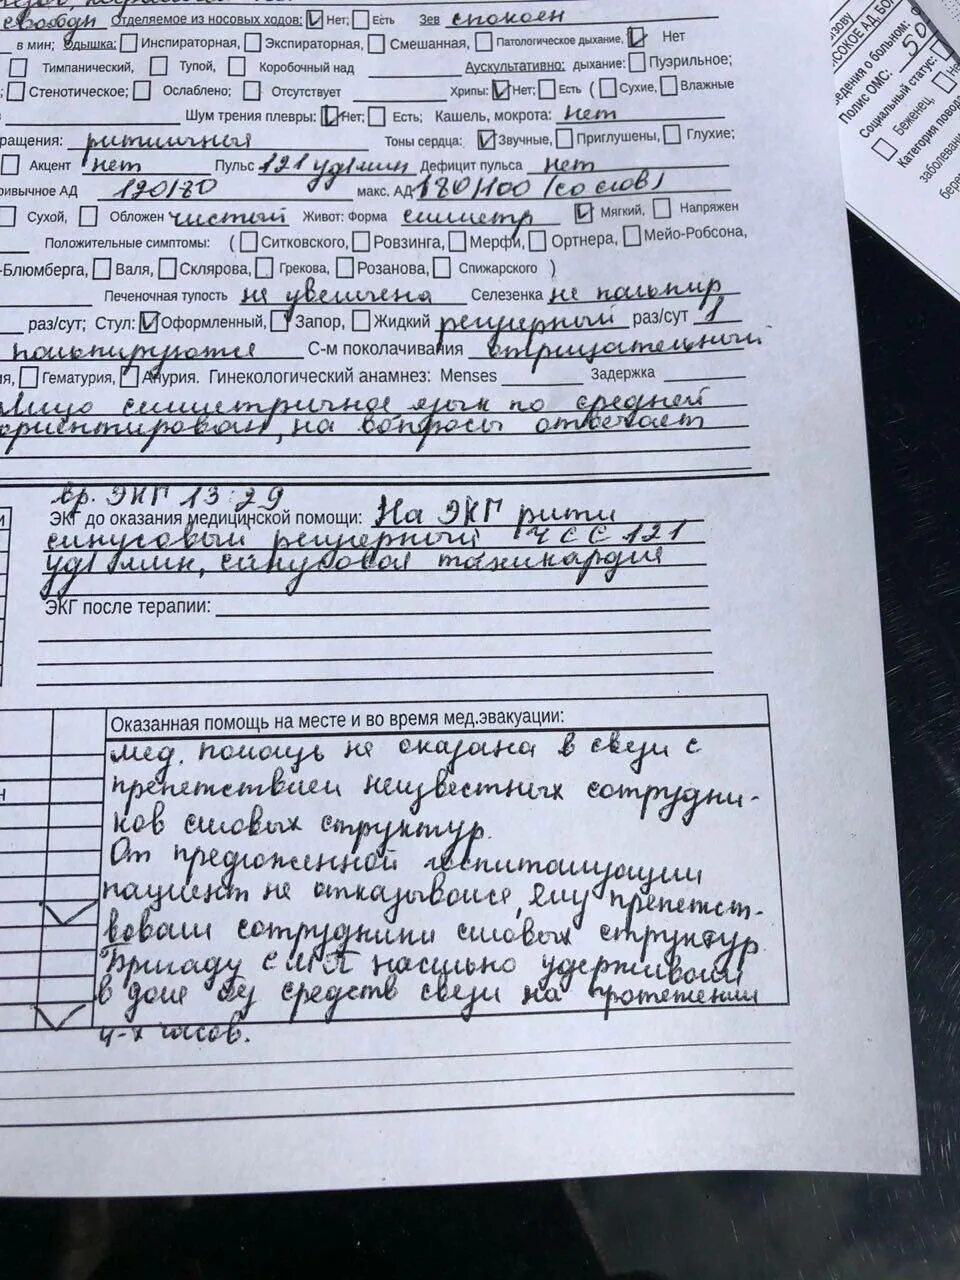 свободн Отделяемое из носовых ходов: Нет; Есть Зев спокоен
в мин; Одышка: Инспираторная, Экспираторная, Смешанная, Патологическое дыхание, Нет
Тимпанический, Тупой, Коробочный над Аускультативно: дыхание: Пуэрильное;
Стенотическое; Ослаблено; Отсутствует Хрипы: Нет; Есть ( Сухие, Влажные
Шум трения плевры: Нет; Есть; Кашель, мокрота: нет
ращения: ритмичный Тоны сердца: Звучные, Приглушены, Глухие;
Акцент нет Пульс 121 уд/мин Дефицит пульса нет
ривычное АД 120/80 макс. АД 180/100 (со слов)
Сухой, Обложен чистый Живот: Форма симметр Мягкий, Напряжен
Положительные симптомы: ( Ситковского, Ровзинга, Мерфи, Ортнера, Мейо-Робсона,
-Блюмберга, Валя, Склярова, Грекова, Розанова, Спижарского )
Печеночная тупость не увеличена Селезенка не пальпир
раз/сут; Стул: Оформленный, Запор, Жидкий регулерный раз/сут 1
пальпируются С-м поколачивания отрицательный
ия, Гематурия, Анурия. Гинекологический анамнез: Menses Задержка
Лицо симметричное язык по средней
ориентирован, на вопросы отвечает
вр. ЭКГ 13:29
ЭКГ до оказания медицинской помощи: На ЭКГ ритм
синусовый регулерный ЧСС 121
уд/мин, синусовая тахикардия
ЭКГ после терапии:
Оказанная помощь на месте и во время мед.эвакуации:
мед. помощь не оказана в связи с
препетствием неизвестных сотрудни-
ков силовых структур.
От предложенной госпитализации
пациент не отказывался, ему препетст-
вовали сотрудники силовых структур.
Бригаду СМП насильно удерживали
в доме без средств связи на протежении
4-х часов.
ызову
ЫСОКОЕ АД, БОЛ
ведения о больном:
Полис ОМС: 50
Социальный статус:
Беженец,
Категория повод
заболевани
бере